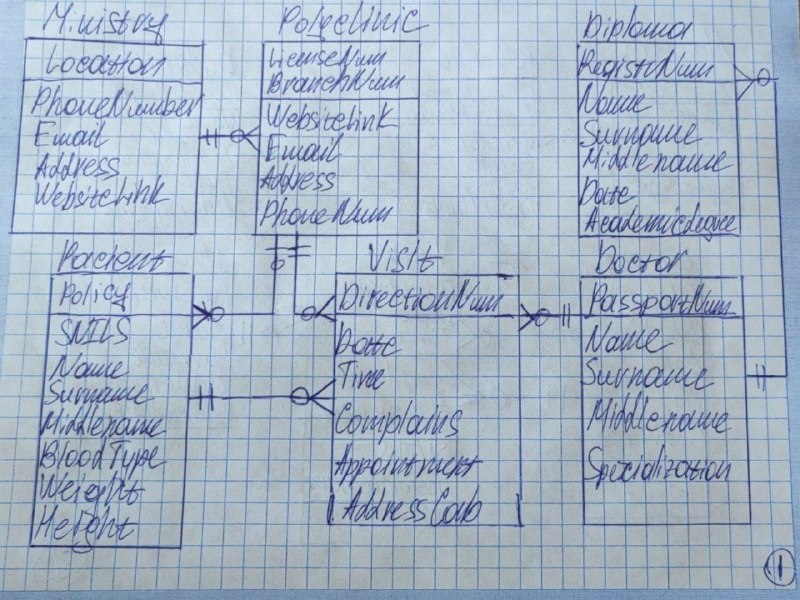 Ministry
Location
PhoneNumber
Email
Address
WebsiteLink
Polyclinic
LicenseNum
BranchNum
WebsiteLink
Email
Address
PhoneNum
Diploma
RegistrNum
Name
Surname
Middlename
Date
Academicdegree
Pacient
Policy
SNILS
Name
Surname
Middlename
BloodType
Weight
Height
Visit
DirectionNum
Date
Time
Complains
Appointment
Address
Doctor
PassportNum
Name
Surname
Middlename
Specialization
1